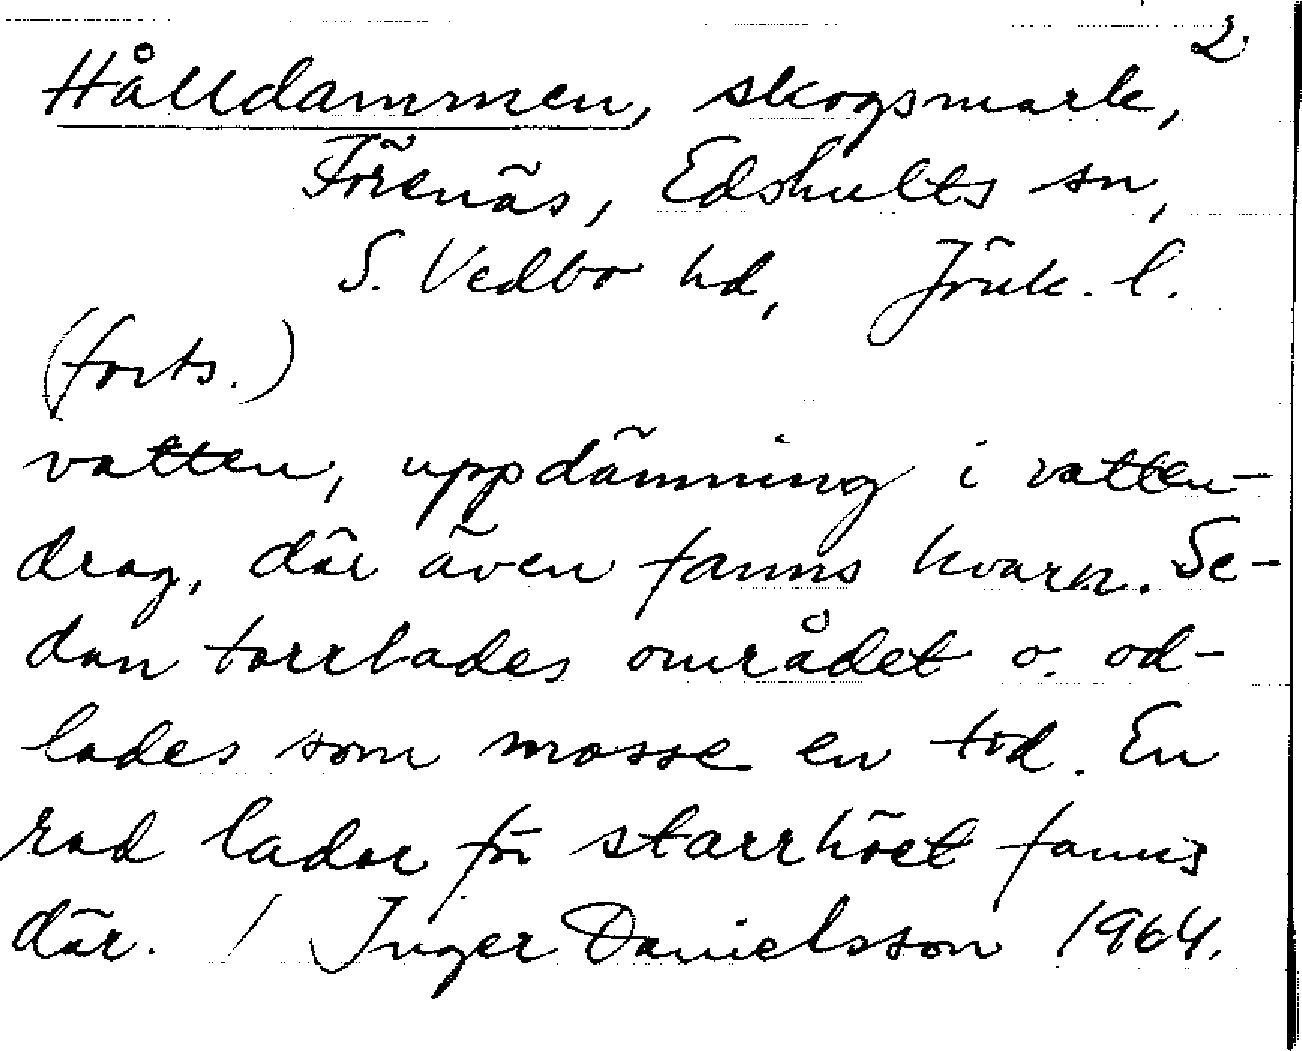 2
Hålldammen, skogsmark,
Förenäs, Edshults sn,
S. Vedbo hd, Jönk. l.
(forts.)
vatten, uppdämning i vatten-
drag, där även fanns kvarn. Se-
dan torrlades området o. od-
lades som mosse en tid. En
rad lador för starrhöet fanns
där. / Inger Danielsson 1964.